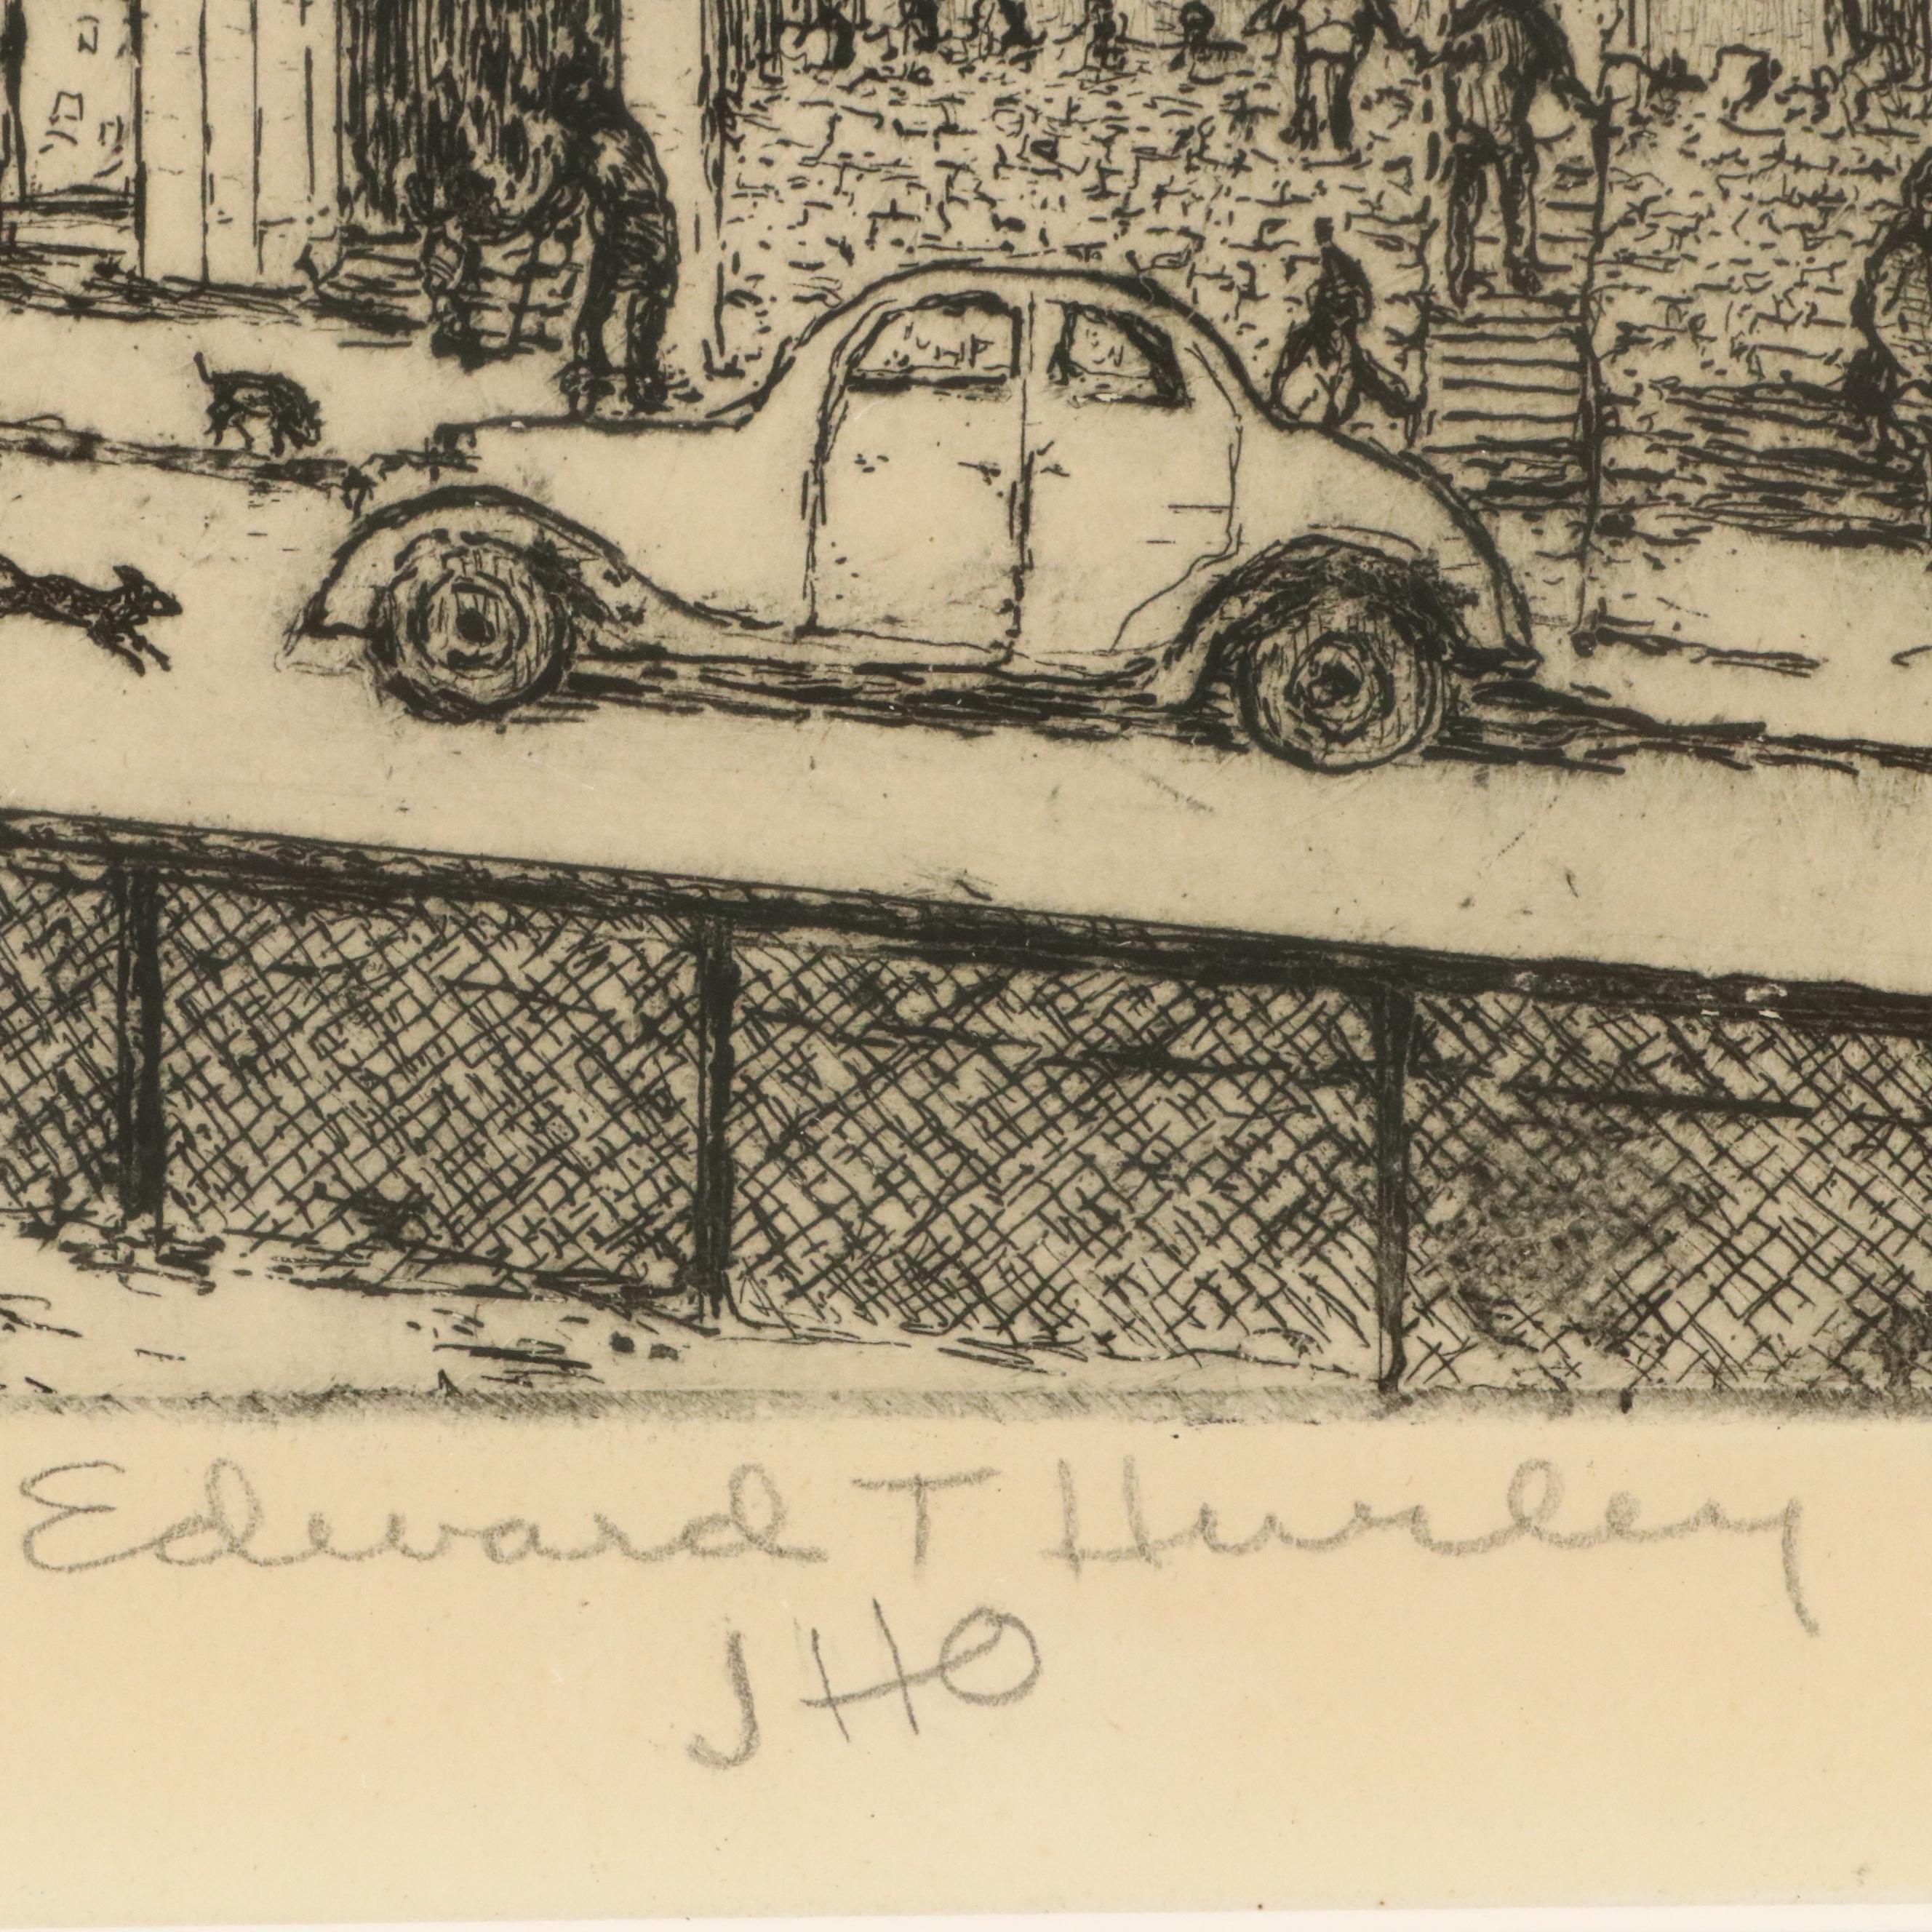 Edward T Hurley
JHO